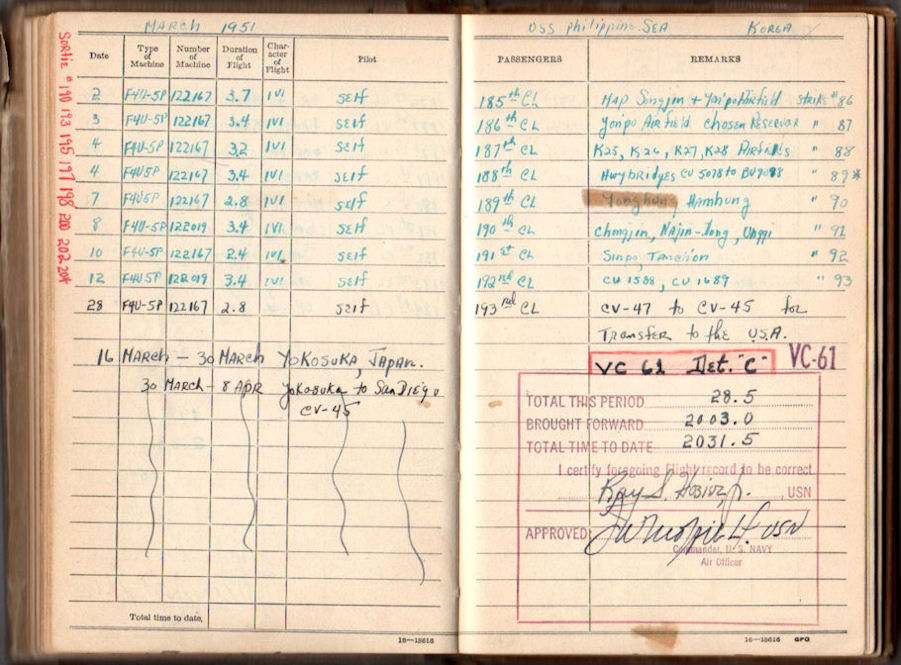 MARCH 1951
Date Type of Machine Number of Machine Duration of Flight Character of Flight Pilot
2 F4U-5P 122167 3.7 1V1 SElf
3 F4U-5P 122167 3.4 1V1 SElf
4 F4U-5P 122167 3.2 1V1 SElf
4 F4U5P 122167 3.4 1V1 SElf
7 F4U-5P 122167 2.8 1V1 SElf
8 F4U-5P 122019 3.4 1V1 SElf
10 F4U-5P 122167 2.4 1V1 SElf
12 F4U5P 122019 3.4 1V1 SElf
28 F4U-5P 122167 2.8 SElf
16 MARCH - 30 MARCH YOKOSUKA, JAPAN.
30 MARCH - 8 APR Yokosuka to San Diego
CV-45
Total time to date,
16-15616
Sortie # 190 193 195 197 198 200 202 204
USS Philippine SEA KOREA
PASSENGERS REMARKS
185th CL Map Songjin + Yonpo Airfield strike #86
186th CL Yonpo Airfield Chosen Reservoir " 87
187th CL K25, K26, K27, K28 Airfields " 88
188th CL Hwy bridges CU 5078 to " 89*
189th CL Hamhung " 90
190th CL Chongjin, Najin-Dong, Unggi " 91
191st CL Sinpo, " 92
192nd CL CU 1588, CU 1689 " 93
193rd CL CV-47 to CV-45 for
Transfer to the U.S.A.
VC 61 Det. "C" VC-61
TOTAL THIS PERIOD 28.5
BROUGHT FORWARD 2003.0
TOTAL TIME TO DATE 2031.5
I certify foregoing flight record to be correct
Ray S. , USN
APPROVED: USN
Commander, U. S. NAVY
Air Officer
16-15616 GPO